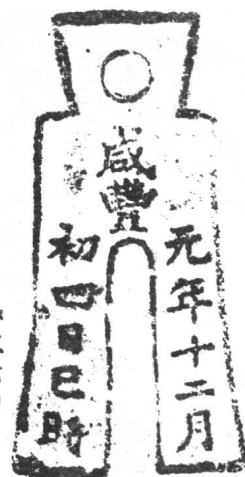 咸豐
元年十二月
初四日巳時